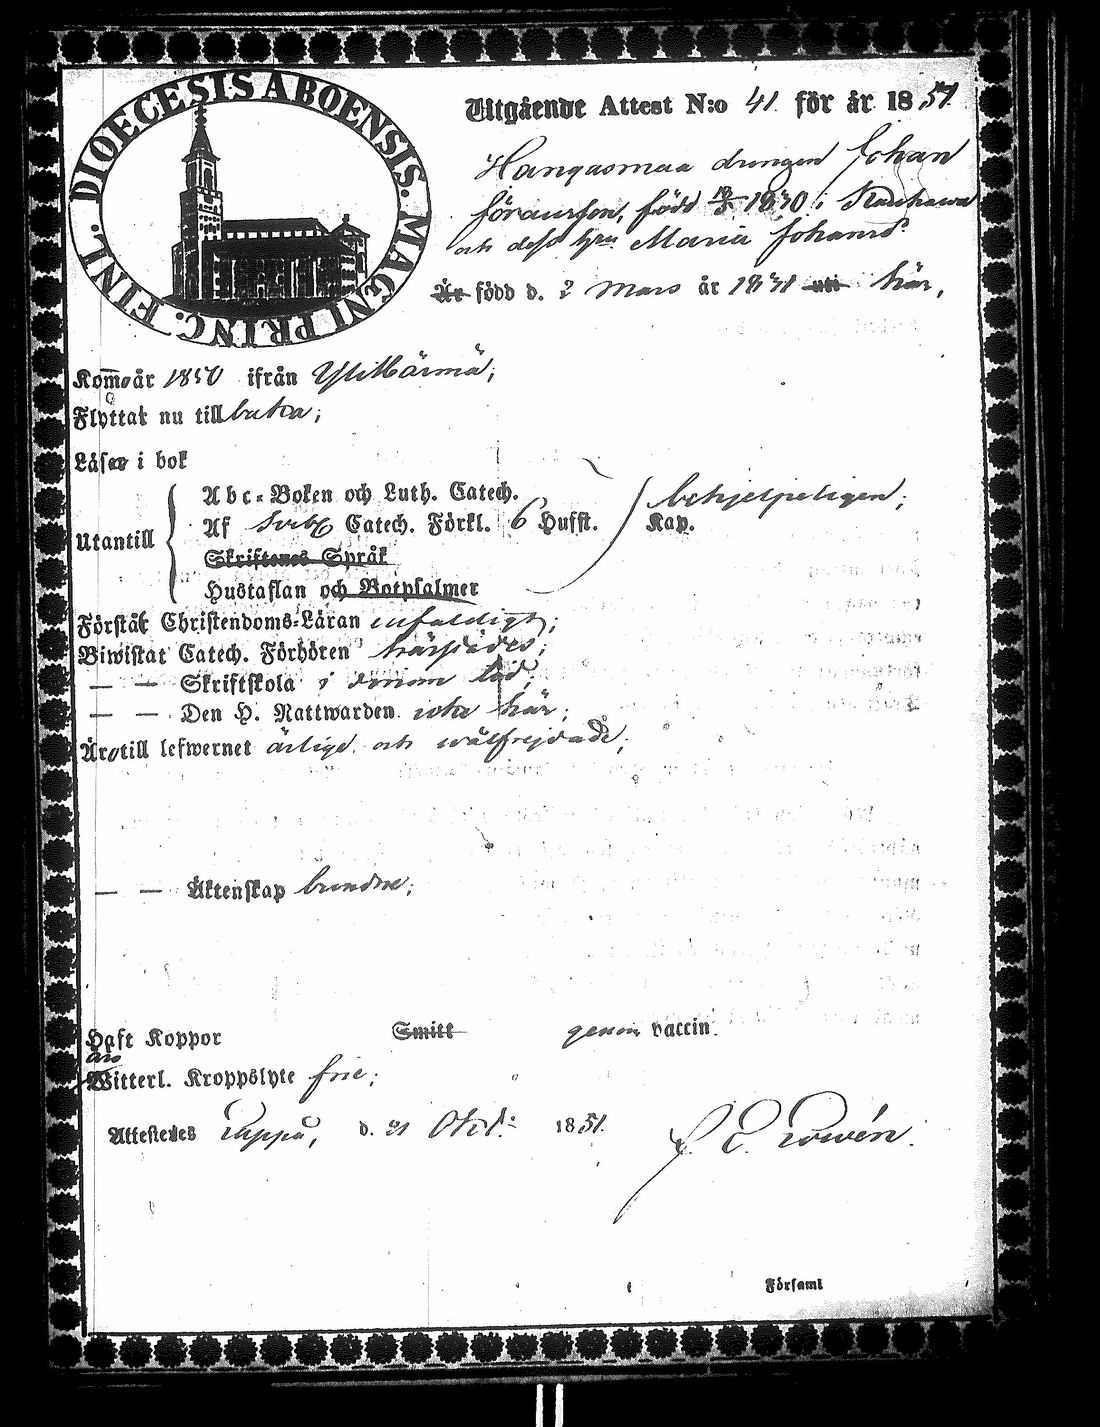 DIOECESIS ABOENSIS. MAGNI PRINC. FINL.
Utgående Attest N:o 41. för år 1851.
Hangasmaa drengen Johan
född 1830 i Kauhava
och dess Maria Johansdr
Är född d. 2 Mars år 1831 här,
Kom år 1850 ifrån Ylihärmä;
Flyttat nu tillbaka;
Läser i bok
Abc-Boken och Luth. Catech. behjelpeligen;
Utantill Af Svebel. Catech. Förkl. 6 Hufst. Kap.
Skriftenes Språk
Hustaflan och Botpsalmer
Förstår Christendoms-Läran enfaldigt;
Biwistat Catech. Förhören härstädes;
— — Skriftskola i sinom tid;
— — Den H. Nattwarden icke här;
Äro till lefwernet ärlige och wälfrejdade;
— — Äktenskap bundne;
Haft Koppor Smitt genom vaccin.
äro
Witterl. Kroppslyte frie;
Attesteres Lappo, d. 21 Okt. 1851.
Församl